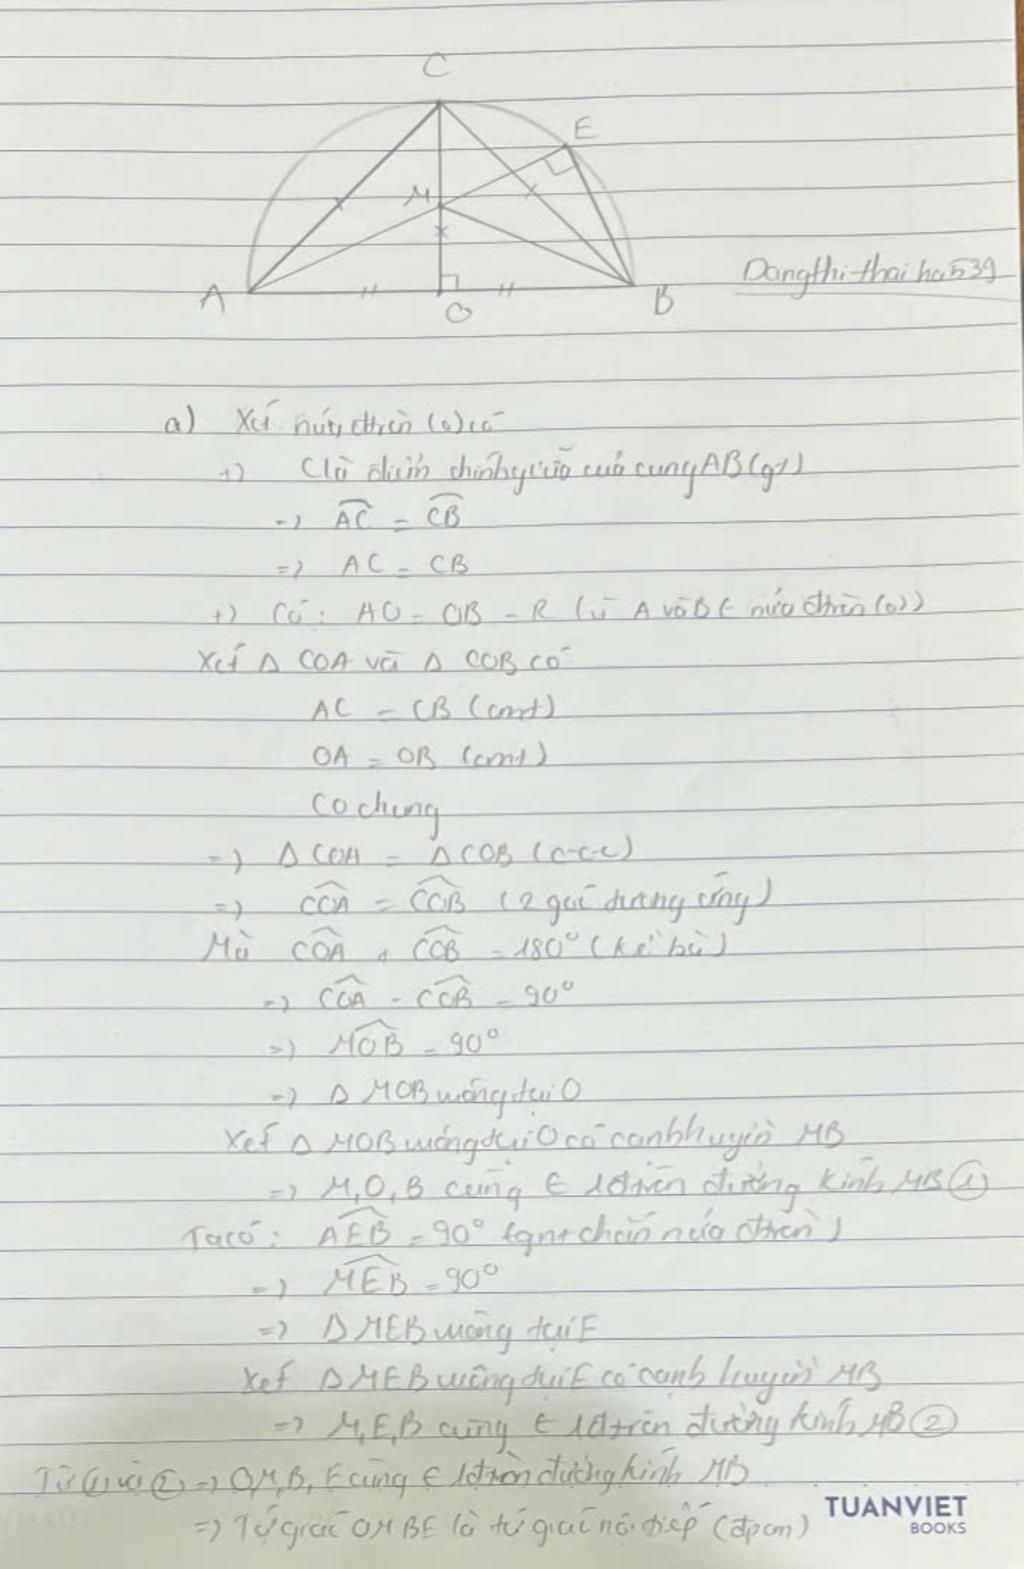 C
E
M
A
O
B
Dangthi-thaiha539
a) Xét nửa đtròn (O) có
+) C là điểm chính giữa của cung AB (gt)
=> AC = CB
=> AC = CB
+) Có: AO = OB = R (vì A và B ∈ nửa đtròn (O))
Xét Δ COA và Δ COB có
AC = CB (cmt)
OA = OB (cmt)
CO chung
=> Δ COA = Δ COB (c-c-c)
=> COA = COB (2 góc tương ứng)
Mà COA + COB = 180° (kề bù)
=> COA = COB = 90°
=> MOB = 90°
=> Δ MOB vuông tại O
Xét Δ MOB vuông tại O có cạnh huyền MB
=> M, O, B cùng ∈ 1 đtròn đường kính MB ①
Ta có: AEB = 90° (gnt chắn nửa đtròn)
=> MEB = 90°
=> Δ MEB vuông tại E
Xét Δ MEB vuông tại E có cạnh huyền MB
=> M, E, B cùng ∈ 1 đtròn đường kính MB ②
Từ ① và ② => O, M, B, E cùng ∈ 1 đtròn đường kính MB
=> Tứ giác OMBE là tứ giác nội tiếp (đpcm)
TUANVIET
BOOKS